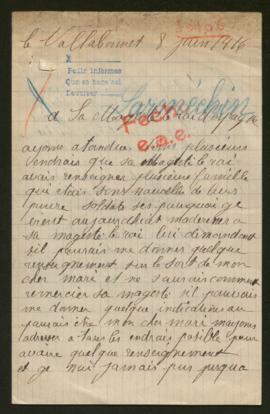 le Vallabonnet 8 juin 1916
X
Pedir informes
Que se hace así
Devolver
Sarméchin
Fecit
e.a.e.
a Sa Majesté le Roi d'Espagne
ayons atandue dans plusieurs
lendrais que sa magesté le roi
avais renseigner plusieure famille
qui etais sans nouvelle de leurs
pauvre soldats ses pourquoi je
crerait aujourd'huit madresser a
sa magesté le roi lui dimandant
sil pourais me donner quelque
renseignement sur le sort de mon
cher mari et ne saurais comment
remercier sa magesté sil pourais
me donner quelque indication au
paurais être mon cher mari mayons
adresser a tous les endrais posible pour
avoire quelque renseignement
et je nais jamais pus jusqua